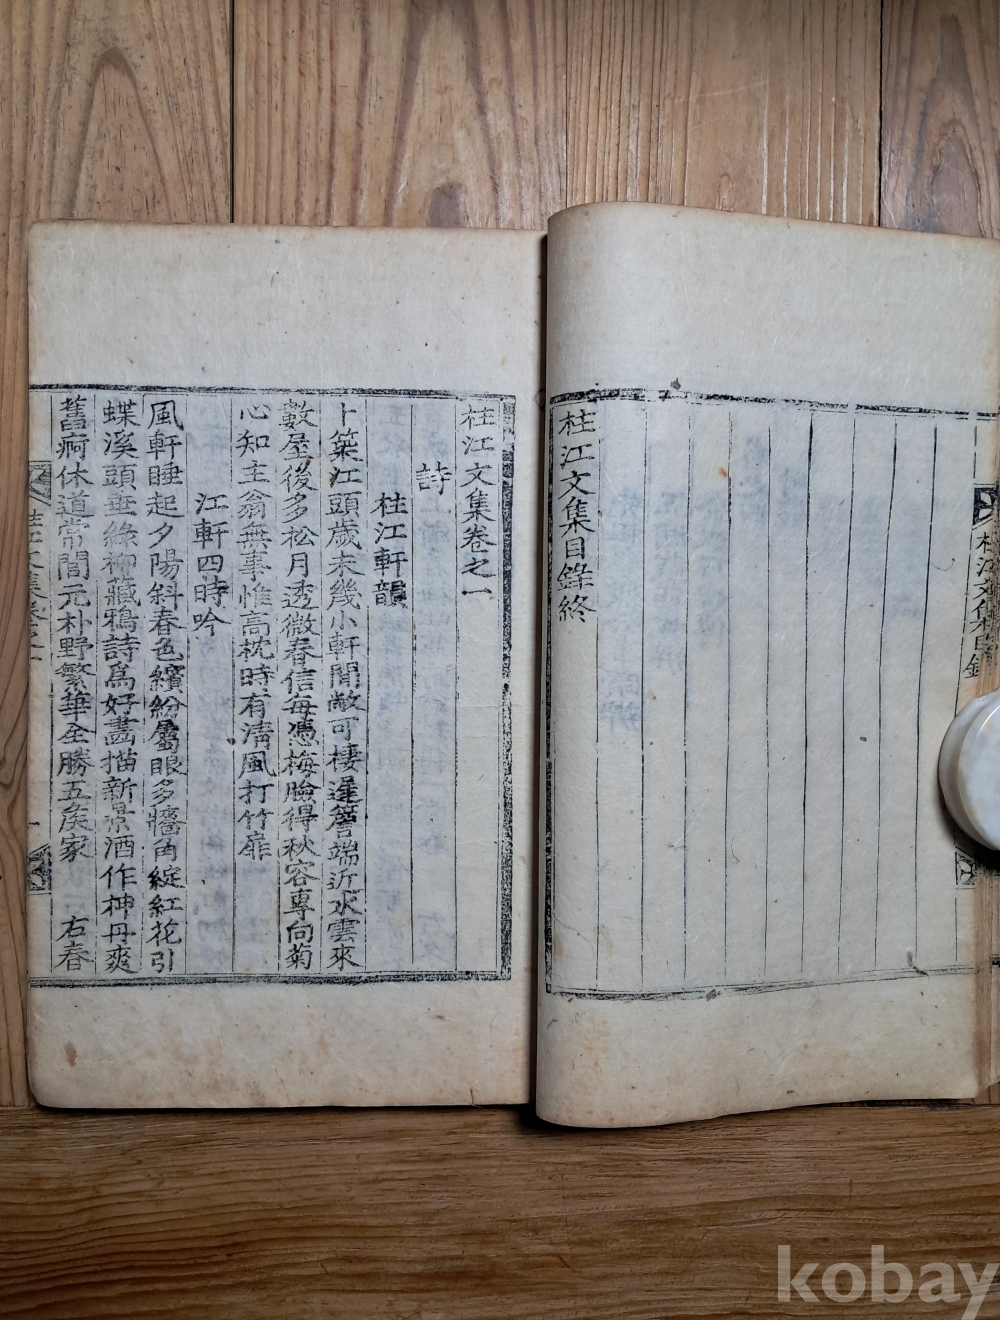 桂江文集目錄
桂江文集目錄終
桂江文集卷之一
詩
桂江軒韻
卜築江頭歲未幾小軒開敞可棲遲簷端近水雲來
數屋後多松月透微春信每憑梅臉得秋容專向菊
心知主翁無事惟高枕時有淸風打竹扉
江軒四時吟
風軒睡起夕陽斜春色繽紛屬眼多牆角綻紅花引
蝶溪頭垂綠柳藏鴉詩爲好畵描新景酒作神丹爽
舊痾休道常閒元朴野繁華全勝五矦家 右春
桂江文集卷之一
一
kobay